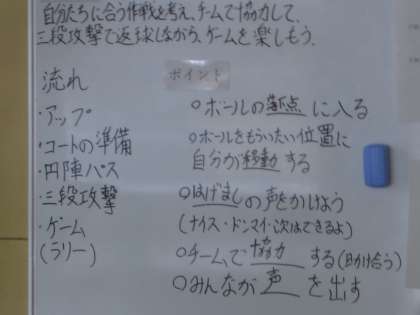 自分たちに合う作戦を考え、チームで協力して、
三段攻撃で返球しながら、ゲームを楽しもう。
流れ
・アップ
・コートの準備
・円陣パス
・三段攻撃
・ゲーム
(ラリー)
ポイント
○ボールの落点に入る
○ボールをもらいたい位置に
自分が移動する
○はげましの声をかけよう
(ナイス・ドンマイ・次はできるよ)
○チームで協力する(助け合う)
○みんなが声を出す